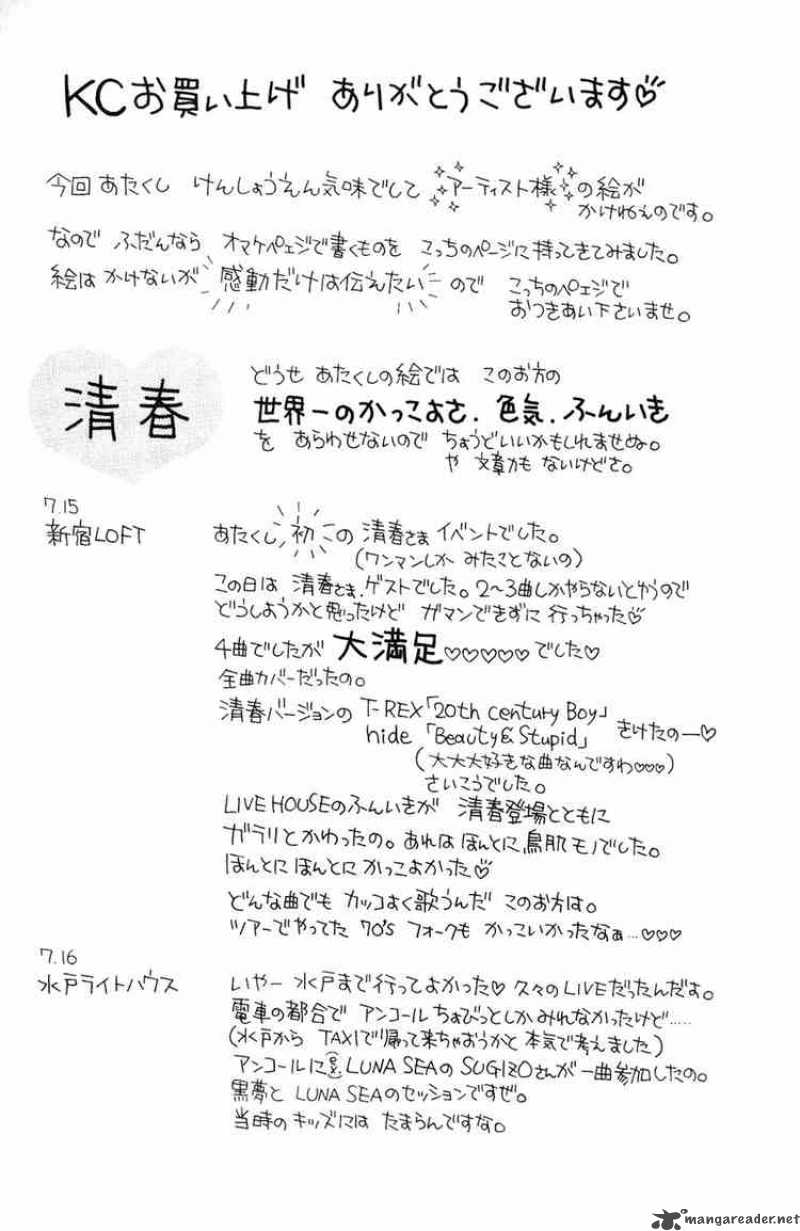 KCお買い上げ ありがとうございます♡
今回 あたくし けんしょうえん気味でして アーティスト様 の絵が
かけねぇのです。
なので ふだんなら オマケペェジで書くものを こっちのページに持ってきてみました。
絵は かけないが 感動だけは伝えたい ので こっちのペェジで
おつきあい下さいませ。
清春
どうせ あたくしの絵では このお方の
世界一のかっこよさ、色気、ふんいき
を あらわせないので ちょうどいいかもしれませぬ。
や 文章力も ないけどさ。
7.15
新宿LOFT
あたくし 初 の 清春さま イベントでした。
(ワンマンしか みたことないの)
この日は 清春さま、ゲストでした。2〜3曲しかやらないとゆうので
どうしようかと思ったけど ガマンできずに 行っちゃった♡
4曲でしたが 大満足♡♡♡♡♡でした♡
全曲カバーだったの。
清春バージョンの T-REX「20th century Boy」
hide「Beauty & Stupid」 きけたのー♡
(大大大好きな曲なんですわ♡♡♡)
さいこうでした。
LIVE HOUSEのふんいきが 清春登場とともに
ガラリとかわったの。あれは ほんとに鳥肌モノでした。
ほんとに ほんとに かっこよかった♡
どんな曲でも カッコよく歌うんだ このお方は。
ツアーでやってた 70's フォークも かっこいかったなぁ…♡♡♡
7.16
水戸ライトハウス
いやー 水戸まで行ってよかった♡ 久々のLIVEだったんだよ。
電車の都合で アンコール ちょびっとしかみれなかったけど……
(水戸から TAXIで帰って来ちゃおうかと 本気で考えました)
アンコールに LUNA SEAの SUGIZOさんが 一曲参加したの。
黒夢と LUNA SEAのセッションですぜ。
当時の キッズには たまらんですな。
mangareader.net